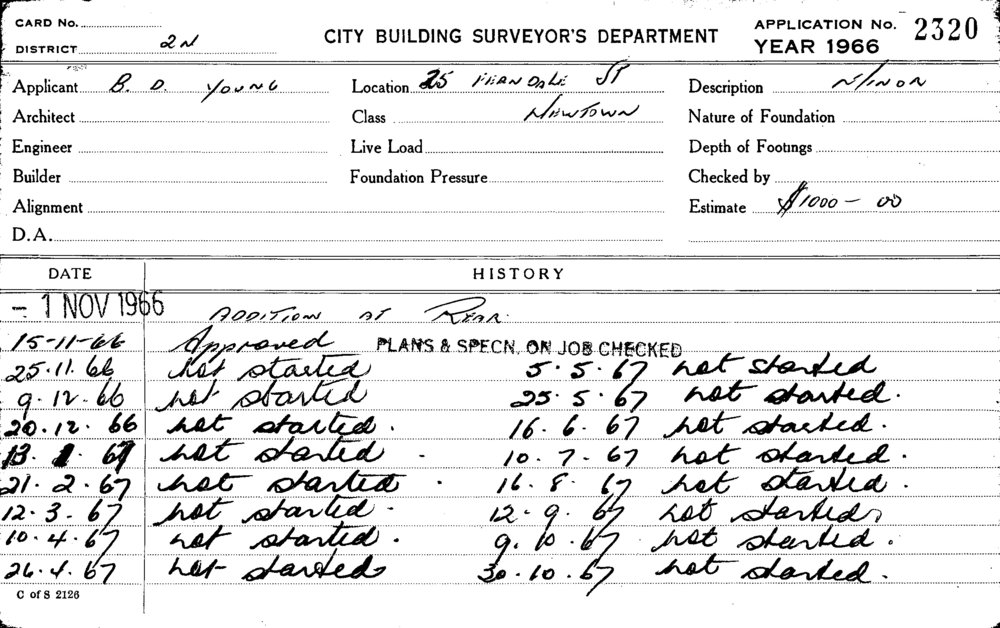 CARD No.
DISTRICT 2N
CITY BUILDING SURVEYOR'S DEPARTMENT
APPLICATION No. 2320
YEAR 1966
Applicant B. D. YOUNG
Location 25 FERNDALE ST
Description
Architect
Class NEWTOWN
Nature of Foundation
Engineer
Live Load
Depth of Footings
Builder
Foundation Pressure
Checked by
Alignment
Estimate $1000-00
D.A.
DATE HISTORY
- 1 NOV 1966 ADDITION AT REAR.
15-11-66 Approved PLANS & SPECN. ON JOB CHECKED
25.11.66 not started 5.5.67 not started
9.12.66 not started 25.5.67 not started.
20.12.66 not started. 16.6.67 not started.
13.1.67 not started. 10.7.67 not started.
21.2.67 not started. 16.8.67 not started.
12.3.67 not started. 12.9.67 not started
10.4.67 not started. 9.10.67 not started.
26.4.67 not started 30.10.67 not started.
C of S 2126